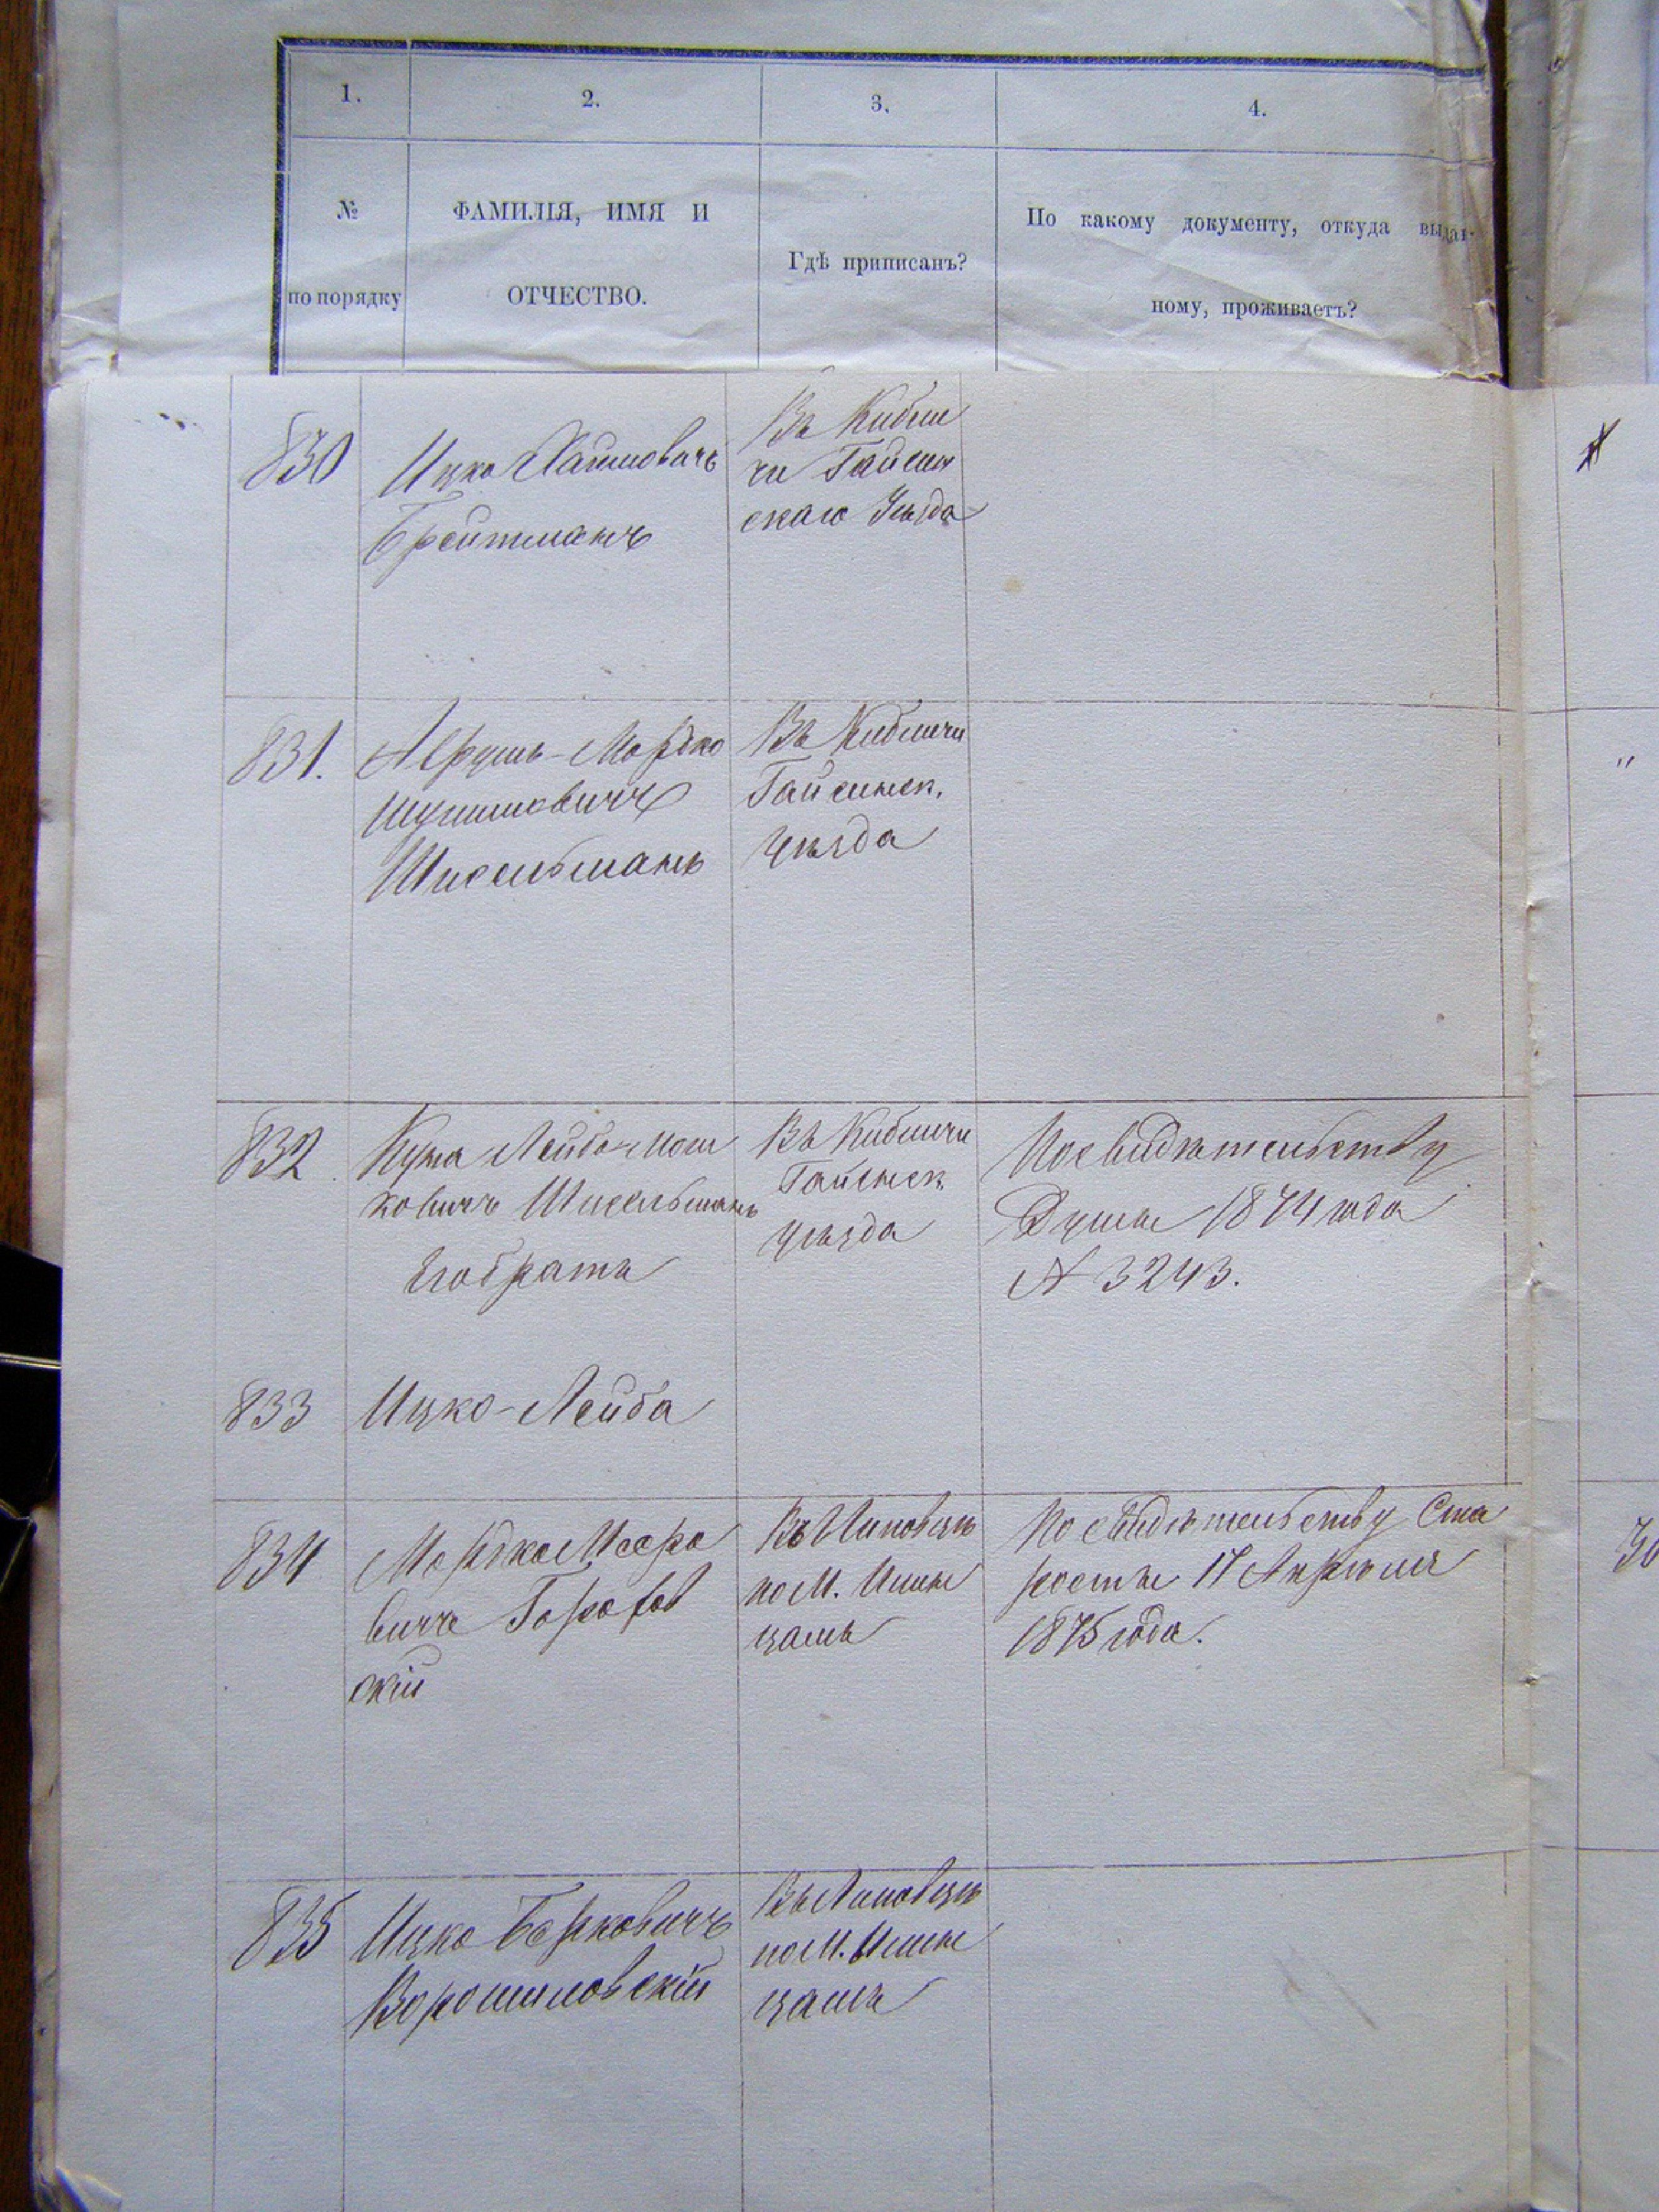 1. 2. 3. 4.
№ по порядку
ФАМИЛІЯ, ИМЯ И
ОТЧЕСТВО.
Гдѣ приписанъ?
По какому документу, откуда выдан-
ному, проживаетъ?
830
Ицко Хаимовичъ
Брейтманъ
Въ Кибли
чи Гайсин
скаго Уѣзда
831.
Мордко
Шулимовичъ
Шисельманъ
Въ Кибличи
Гайсинск.
Уѣзда
832
Лейба-Мош
ковичъ Шисельманъ
Его братъ
Въ Кибличи
Гайсинск
уѣзда
По свидѣтельству
Думы 1874 года
№ 3243.
833
Ицко-Лейба
834
Мордко
вичъ
скій
Въ Липовцѣ
по М.
цамъ
По свидѣтельству Ста
росты 17 Апрѣля
1875 года.
30
835
Ицко Берковичъ
Ворошиловскій
Въ Липовцѣ
по М.
цамъ